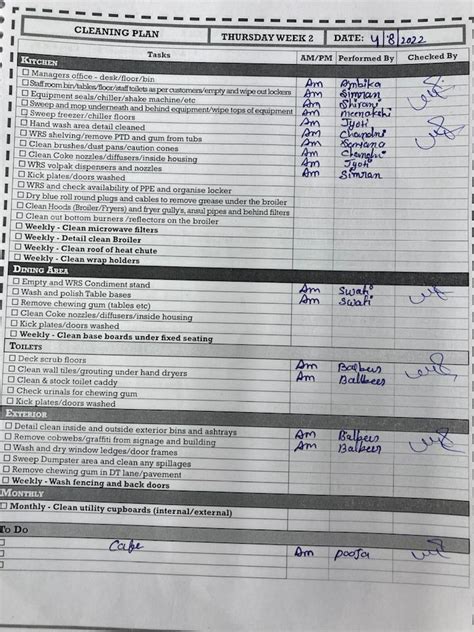 CLEANING PLAN THURSDAY WEEK 2 DATE: 4/8/2022
Tasks AM/PM Performed By Checked By
KITCHEN
Managers office - desk/floor/bin Am Ambika
Staff room bin/tables/floor/staff toilets as per customers/empty and wipe out lockers Am Simran
Equipment seals/chiller/shake machine/etc Am Shirani
Sweep and mop underneath and behind equipment/wipe tops of equipment Am meenakshi
Sweep freezer/chiller floors Am Jyoti
Hand wash area detail cleaned Am Chandni
WRS shelving/remove PTD and gum from tubs Am
Clean brushes/dust pans/caution cones Am Chandni
Clean Coke nozzles/diffusers/inside housing Am Jyoti
WRS volpak dispensers and nozzles Am Simran
Kick plates/doors washed
WRS and check availability of PPE and organise locker
Dry blue roll round plugs and cables to remove grease under the broiler
Clean Hoods (Broiler/Fryers) and fryer gully's, ansul pipes and behind filters
Clean out bottom burners /reflectors on the broiler
Weekly - Clean microwave filters
Weekly - Detail clean Broiler
Weekly - Clean roof of heat chute
Weekly - Clean wrap holders
DINING AREA
Empty and WRS Condiment stand Am Swati
Wash and polish Table bases Am Swati
Remove chewing gum (tables etc)
Clean Coke nozzles/diffusers/inside housing
Kick plates/doors washed
Weekly - Clean base boards under fixed seating
TOILETS
Deck scrub floors Am Balbeer
Clean wall tiles/grouting under hand dryers Am Balbeer
Clean & stock toilet caddy
Check urinals for chewing gum
Kick plates/doors washed
EXTERIOR
Detail clean inside and outside exterior bins and ashtrays Am Balbeer
Remove cobwebs/graffiti from signage and building Am Balbeer
Wash and dry window ledges/door frames
Sweep Dumpster area and clean any spillages
Remove chewing gum in DT lane/pavement
Weekly - Wash fencing and back doors
MONTHLY
Monthly - Clean utility cupboards (internal/external)
TO DO
Cafe Am pooja